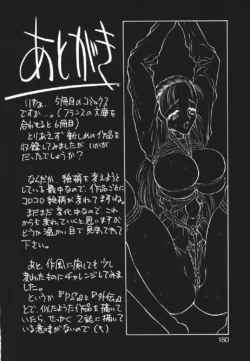 あとがき
いやぁ、5冊目のコミックス
ですか…。(フランスの大庫を
合わせると6冊目)
とりあえず新しめの作品を
収録してみましたが、いかが
だったでしょうか?
なんだか、絵柄を変えようと
している最中なので、作品ごとに
コロコロ絵柄が変わってますね。
まだまだ変化中なので、これ
からも変わっていくと思いますが
どうか温かい目で見守ってやって
下さい。
あと、作風に関しても少し
変わったものにチャレンジしてみま
した。
というか『P'S』と『外伝』
とで、似たような作品を描いて
いたら、せっかく2誌に描いて
いる意味がないので(笑)
180